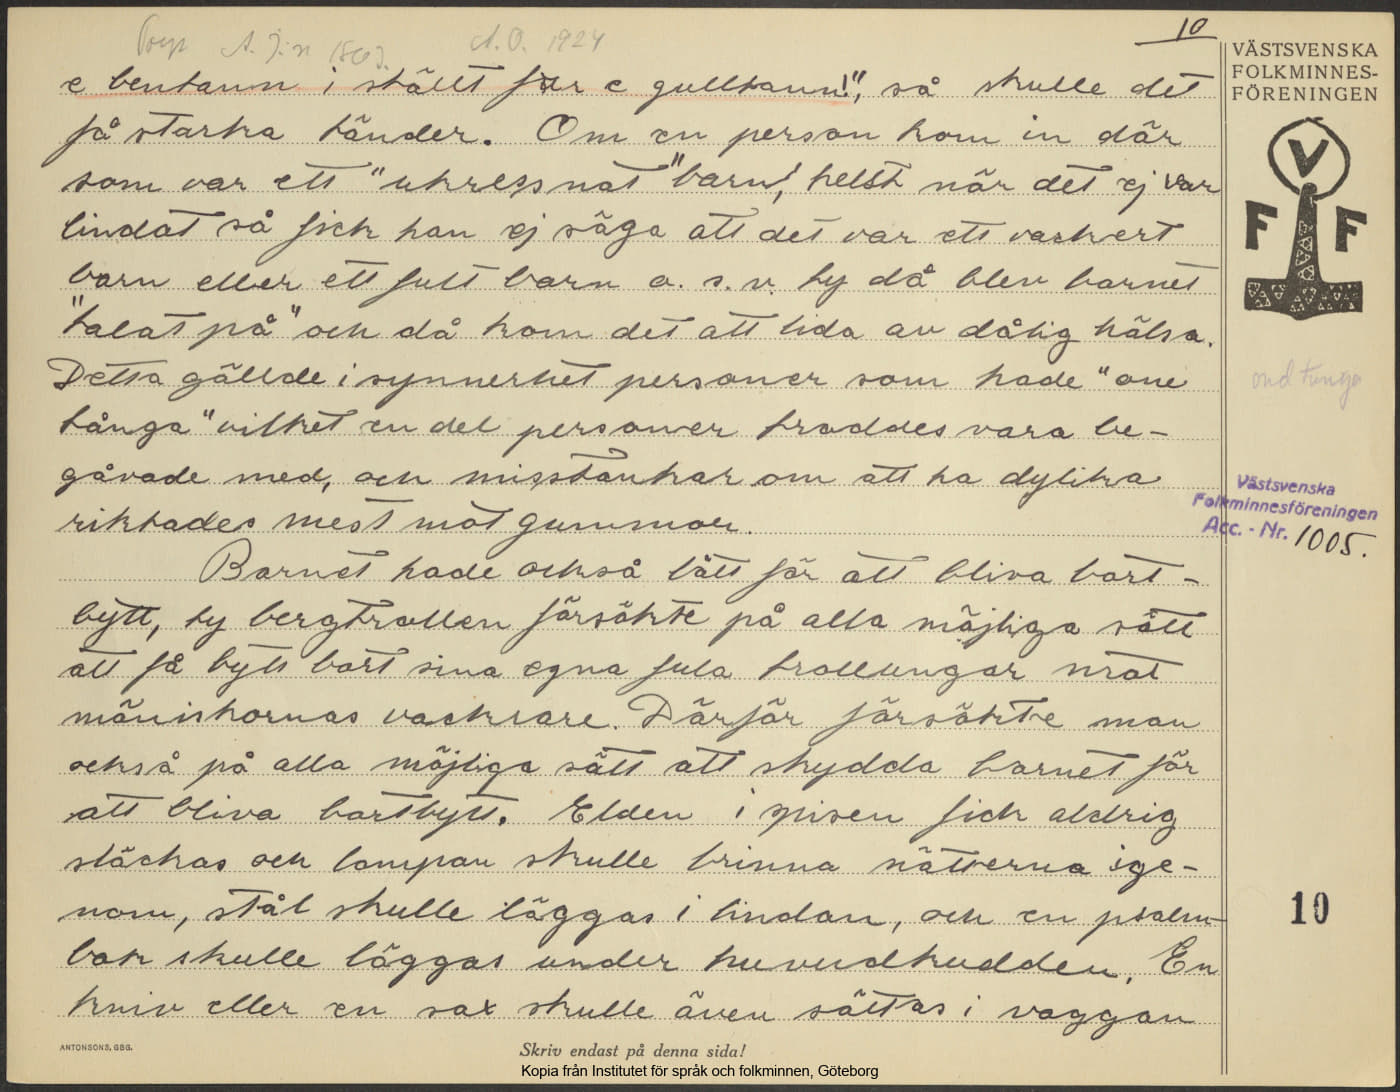 10
A. O. 1924
e bentann i stället för e gulltann!", så skulle det
få starka tänder. Om en person kom in där
som var ett "ukresnat" barn!, helst när det ej var
lindat så fick han ej säga att det var ett vackert
barn eller ett fult barn o. s. v. ty då blev barnet
"talat på" och då kom det att lida av dålig hälsa.
Detta gällde i synnerhet personer som hade "one
tånga" vilket en del personer troddes vara be-
gåvade med, och misstankar om att ha dylika
riktades mest mot gummor.
Barnet hade också lätt för att bliva bort-
bytt, ty bergtrollen försökte på alla möjliga sätt
att få bytt bort sina egna fula trollungar mot
mäniskornas vackrare. Därför försökte man
också på alla möjliga sätt att skydda barnet för
att bliva bortbytt. Elden i spisen fick aldrig
släckas och lampan skulle brinna nätterna ige-
nom, stål skulle läggas i lindan, och en psalm-
bok skulle läggas under huvudkudden. En
kniv eller en sax skulle även sättas i vaggan
VÄSTSVENSKA
FOLKMINNES-
FÖRENINGEN
V
F F
ond tunga
Västsvenska
Folkminnesföreningen
Acc. - Nr. 1005.
10
ANTONSONS, GBG.
Skriv endast på denna sida!
Kopia från Institutet för språk och folkminnen, Göteborg